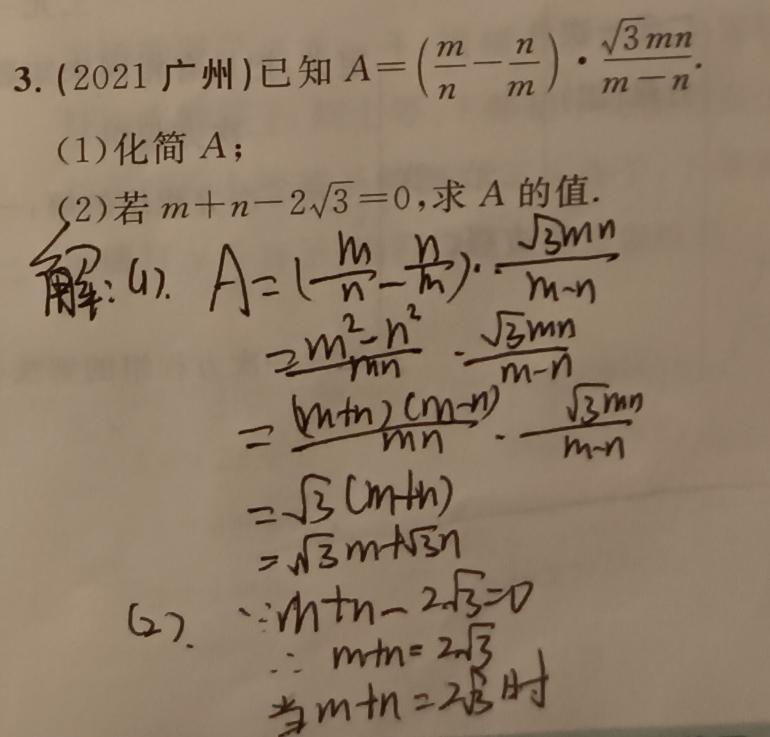 3. (2021 广州)已知 A=(m/n-n/m)·√3mn/(m-n).
(1)化简 A;
(2)若 m+n-2√3=0,求 A 的值.
解:(1). A=(m/n-n/m)·√3mn/(m-n)
=(m²-n²)/mn·√3mn/(m-n)
=(m+n)(m-n)/mn·√3mn/(m-n)
=√3(m+n)
=√3m+√3n
(2). ∵m+n-2√3=0
∴ m+n=2√3
当m+n=2√3时